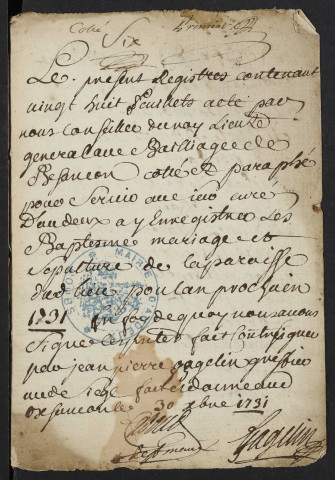 Cotté
Six
Le present Registres contenant
vingt huit feuillets a eté par
nous Conseiller du roy Lieutent
general au Bailliage de
Besancon cotté et paraphé
pour servir au sieur curé
D'audeux a y Enregistrer Les
Baptesmes mariage et
sepulture de la paroisse
dud lieu pour l'an prochain
1731 En foy de quoy nous avons
signé et fait contresigner
par jean pierre Fagelin greffier
aud siege fait et donné aud
Besancon le 30 xbre 1731
Fagelin